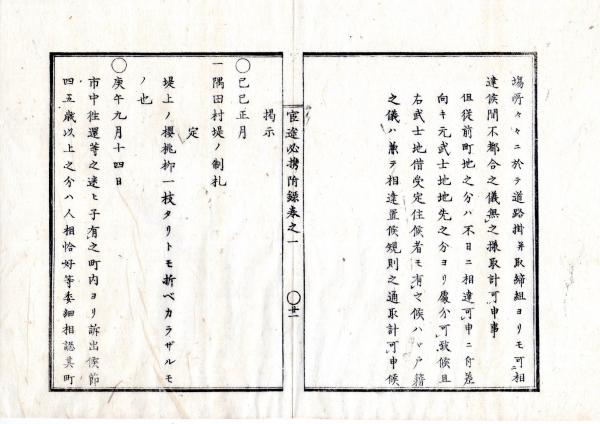 場所々々ニ於テ道路掛并取締組ヨリモ可相
達候間不都合之儀無之様取計可申事
但従前町地之分ハ不日ニ相達可申ニ付差
向キ元武士地地先之分ヨリ處分可致候且
右武士地借受定住候者モ有之候ハヾ戸籍
之儀ハ兼テ相達置候規則之通取計可申候
官途必携附録巻之一
○廿一
掲示
○己巳正月
一隅田村堤ノ制札
定
堤上ノ櫻桃柳一枝タリトモ折ベカラザルモ
ノ也
○庚午九月十四日
市中往還等之迷ヒ子有之町内ヨリ訴出候節
四五歳以上之分ハ人相恰好等委細相認其町